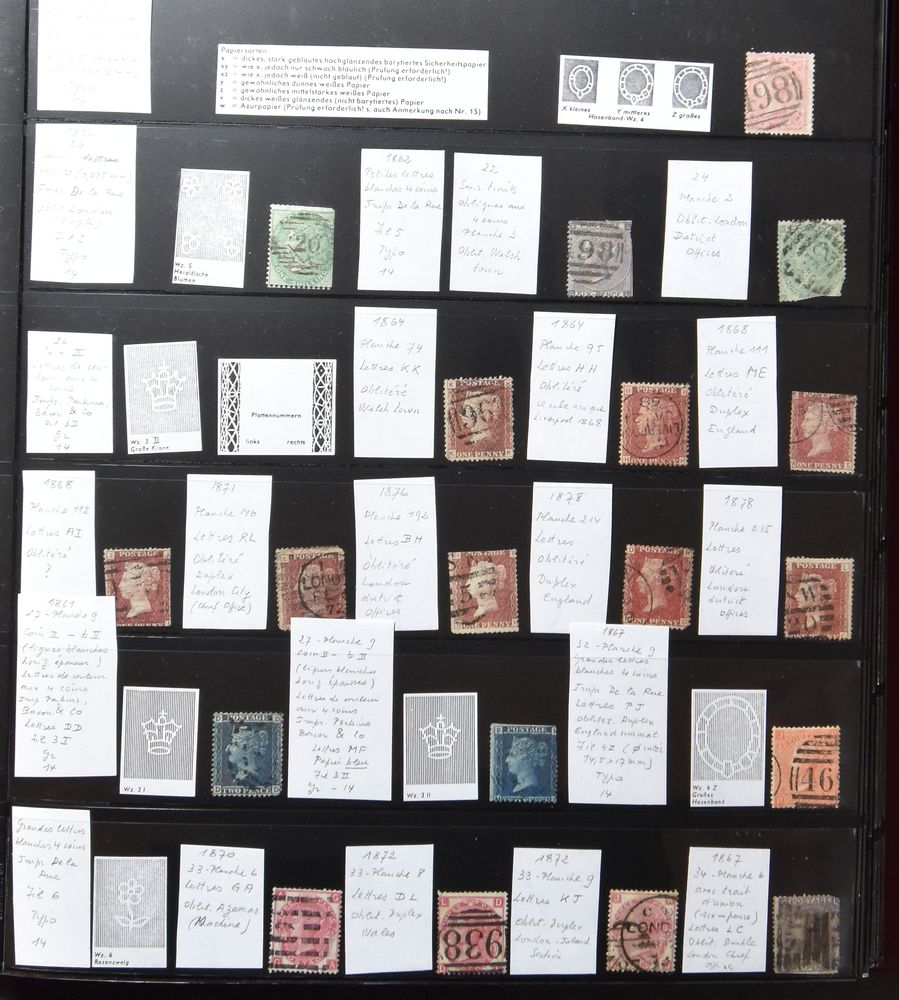 Papiersorten
x = dickes, stark geblautes hochglänzendes barytiertes Sicherheitspapier
xy = wie x, jedoch nur schwach bläulich (Prüfung erforderlich!)
xz = wie x, jedoch weiß (nicht gebläut) (Prüfung erforderlich!)
y = gewöhnliches dünnes weißes Papier
z = gewöhnliches mittelstarkes weißes Papier
v = dickes weißes glänzendes (nicht barytiertes) Papier
w = Azurpapier (Prüfung erforderlich! s. auch Anmerkung nach Nr. 15)
X kleines
Y mittleres
Z großes
Hosenband-Wz. 4
98
lettres
Impr De la Rue
Fil 5
Typo
14
Wz. 5
Heraldische
Blumen
20
1862
Petites lettres
blanches 4 coins
Impr. De la Rue
Fil 5
Typo
14
22
Sans traits
obliques aux
4 coins
Planche 3
Oblit. Welsh
town
98
SIX PENCE
24
Planche 2
Oblit. London
District
Offices
26
Coin II
Lettres de cou-
leur aux 4
coins
Impr. Perkins
Bacon & Co
gz
14
Wz. 3 II
Große Krone
Plattennummern
links rechts
1864
Planche 74
Lettres KK
Oblitéré
Welsh town
POSTAGE
968
ONE PENNY
1864
Planche 95
Lettres HH
Oblitéré
cercle unique
Liverpool 1868
POSTAGE
ONE PENNY
1868
Planche 111
Lettres ME
Oblitéré
Duplex
England
ONE PENNY
1868
Planche 112
Lettres AI
Oblitéré
?
POSTAGE
1871
Planche 146
Lettres RL
Oblitéré
Duplex
London City
(Chief Office)
POSTAGE
LOND
72
1876
Planche 192
Lettres BH
Oblitéré
London
district
Offices
POSTAGE
ONE PENNY
1878
Planche 214
Lettres
Oblitéré
Duplex
England
POSTAGE
1878
Planche 215
Lettres
Oblitéré
London
district
Offices
POSTAGE
W
1861
27 - Planche 9
Coin II - b II
(lignes blanches
long épaisses)
Lettres de couleur
aux 4 coins
Imp. Perkins,
Bacon & Co
Lettres DD
Fil 3 I
gz
14
Wz. 3 I
POSTAGE
TWO PENCE
27 - Planche 9
coin II - b II
(lignes blanches
long épaisses)
Lettres de couleur
aux 4 coins
Impr. Perkins
Bacon & Co
Lettres MF
Papier bleu
Fil 3 II
gz - 14
Wz. 3 II
POSTAGE
1867
32 - Planche 9
Grandes lettres
blanches 4 coins
Impr De la Rue
Lettres PJ
oblitér. Duplex
England normal
Fil 4Z (Ø intér
14,5 x 17 mm)
Typo
14
Wz. 4 Z
Großes
Hosenband
46
Grandes lettres
blanches 4 coins
Impr. De la
Rue
Fil 6
Typo
14
Wz. 6
Rosenzweig
1870
33 - Planche 6
Lettres GA
Oblit. Azemar
(Machine)
1872
33 - Planche 8
Lettres DL
Oblit. Duplex
Wales
938
1872
33 - Planche 9
Lettres KJ
Oblit. Duplex
London - Inland
Section
LOND
1867
34 - Planche 6
avec trait
d'union
(six-pence)
Lettres LC
Oblit. Double
London Chief
Office